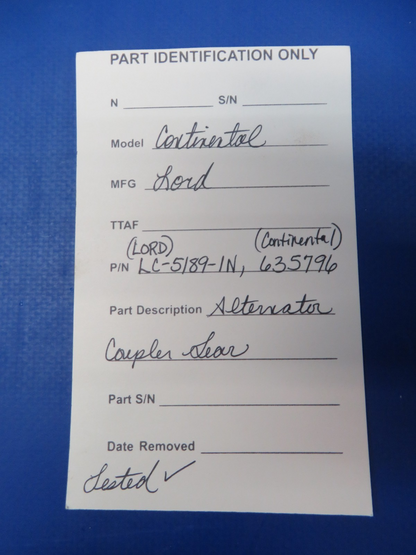 PART IDENTIFICATION ONLY
N ____________ S/N ____________
Model Continental
MFG Lord
TTAF ____________
(LORD) (Continental)
P/N LC-5189-1N, 635796
Part Description Alternator
Coupler Gear
Part S/N ____________
Date Removed ____________
Tested ✓